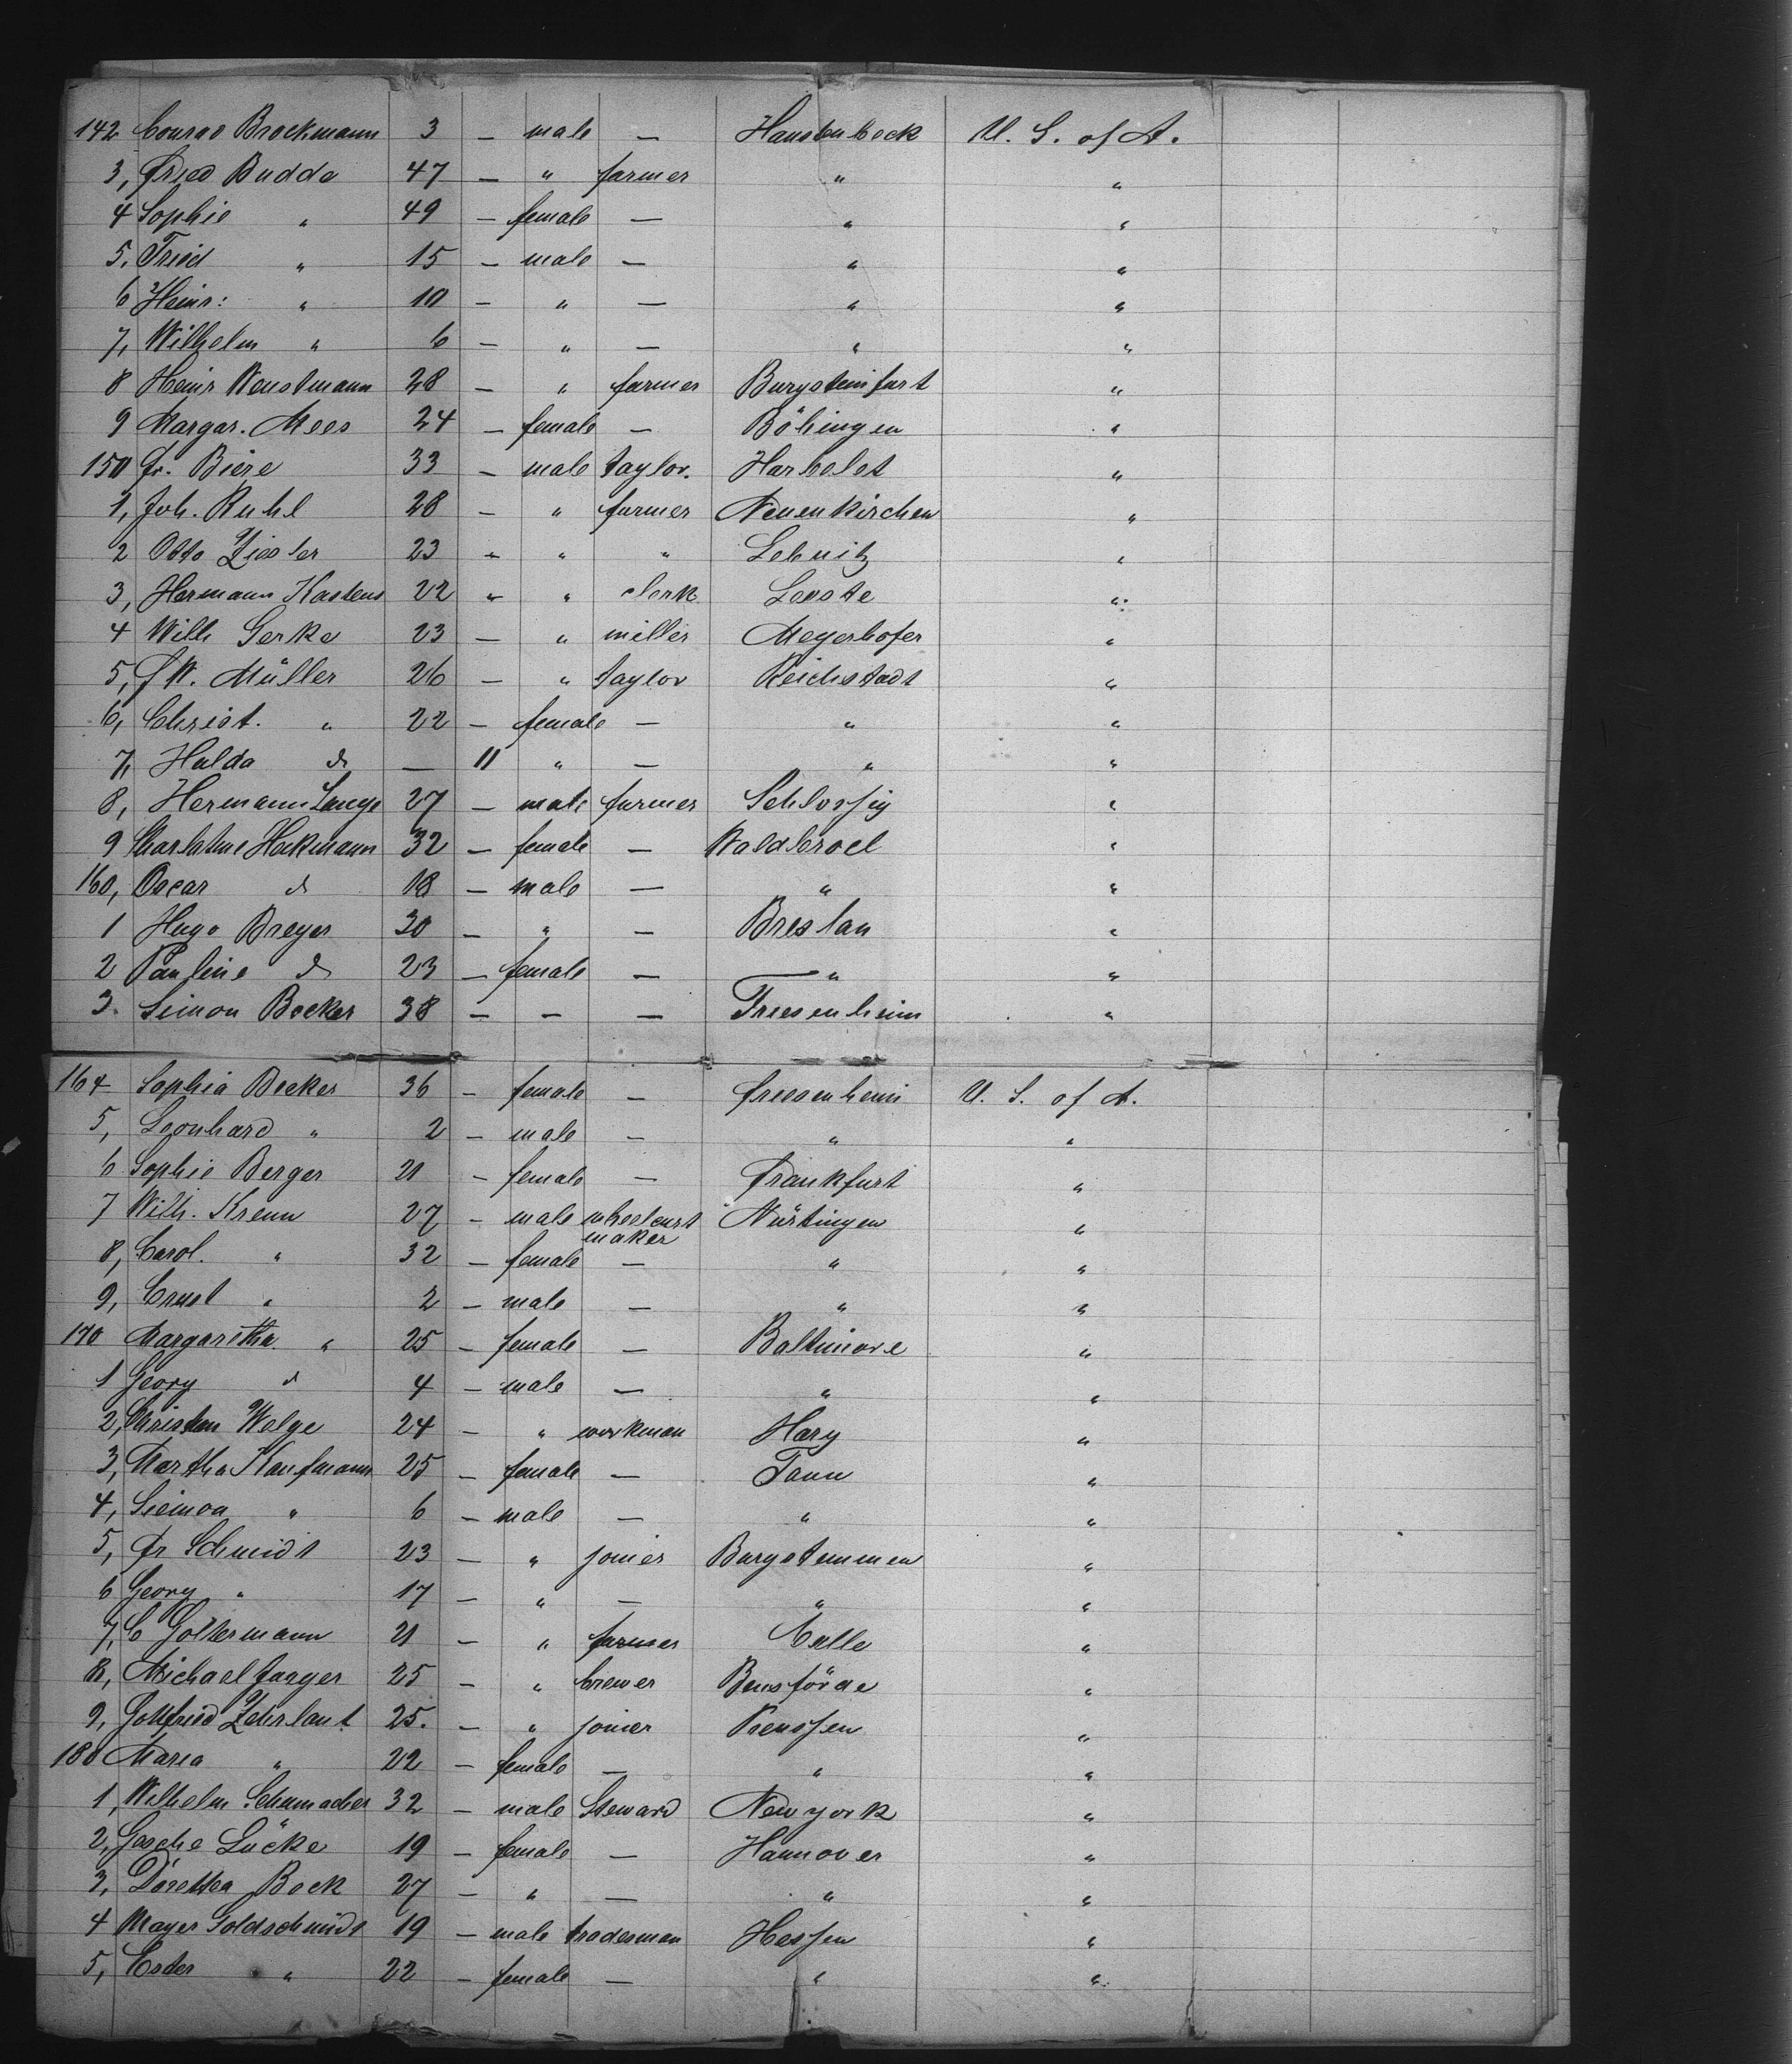 142 Conrad Brockmann 3 — male — Haustenbeck U. S. of A.
3, Fried Budde 47 — " farmer " "
4 Sophie " 49 — female — " "
5, Fried " 15 — male — " "
6 Heinr: " 10 — " — " "
7, Wilhelm " 6 — " — " "
8 Heinr Wenstmann 28 — " farmer Burgsteinfurt "
9 Margar. Mees 24 — female — Böhingen "
150 Fr. Biere 33 — male taylor. "
1, Joh. Ruhl 28 — " farmer Neuenkirchen "
2 Otto Ziesler 23 — " " Lebnitz "
3, Hermann Kastens 22 " " clerk Leeste "
4 Wilh Gerke 23 — " miller Meyerhofer "
5, F W. Müller 26 — " taylor Reichstadt "
6, Christ. " 22 — female — " "
7, Hulda do — 11 " — " "
8, Hermann Lange 27 — male farmer Schlossig "
9 Charlotme Heckmann 32 — female — Waldbroel "
160, Oscar do 18 — male — " "
1 Hugo Breyer 30 — " — Breslau "
2 Pauline do 23 — female — " "
3. Simon Becker 38 — — — Freesenheim "
164 Sophia Becker 36 — female — Freesenheim U. S. of A.
5, Leonhard " 2 — male — " "
6 Sophie Berger 21 — female — Frankfurt "
7 Wilh. Krenn 27 — male wheelcart maker Nürtingen "
8, Carol. " 32 — female — " "
9, Ernst " 2 — male — " "
170 Margaretha " 25 — female — Baltimore "
1 Georg do 4 — male — " "
2, Christian Welge 24 — " workman Hary "
3, Martha Kaufmann 25 — female — Tann "
4, Siemon " 6 — male — " "
5, Fr Schmidt 23 — " joiner Burgstemmen "
6 Georg " 17 — " — " "
7, C Goltermann 21 — " farmer Calle "
8, Michael Junger 25 — " brewer "
9, Gottfried 25. — " joiner Reussen "
180 Maria " 22 — female — " "
1, Wilhelm Schumacher 32 — male Steward New york "
2, Gesche Lücke 19 — female — Hannover "
3, Dorethea Bock 27 — " — " "
4 Mayer Goldschmidt 19 — male tradesman Hessen "
5, Ester " 22 — female — " "